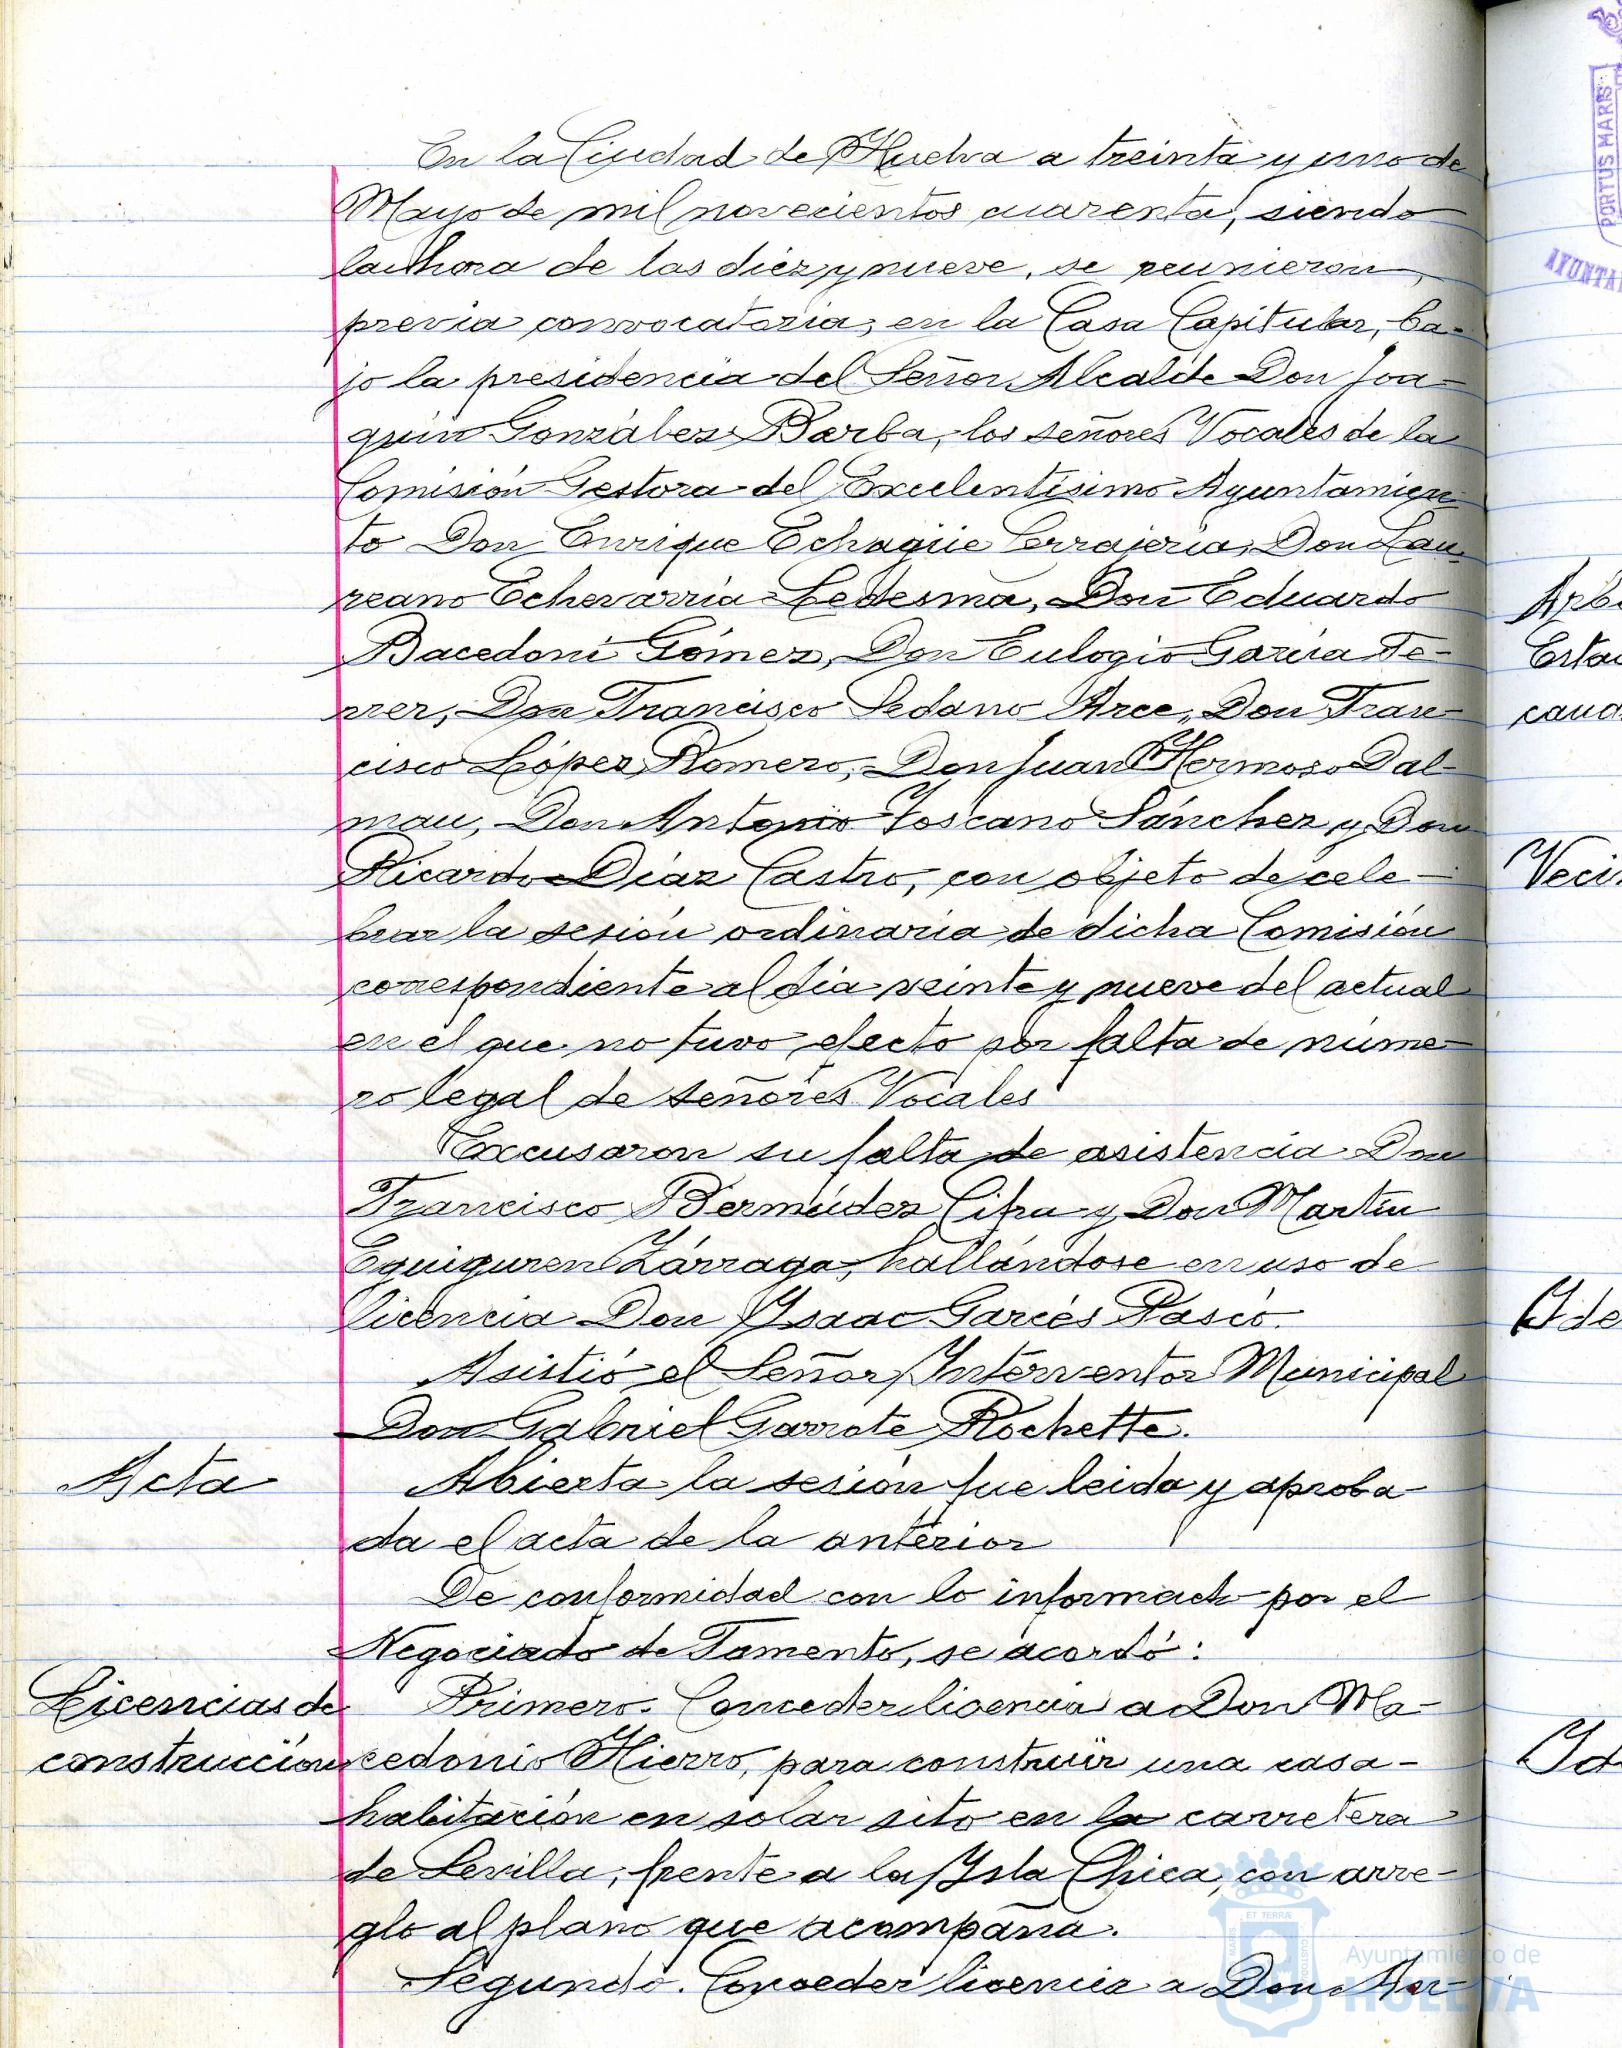 En la Ciudad de Huelva a treinta y uno de
Mayo de mil novecientos cuarenta, siendo
la hora de las diez y nueve, se reunieron,
previa convocatoria, en la Casa Capitular, ba-
jo la presidencia del Señor Alcalde Don Joa-
quin González Barba, los señores Vocales de la
Comisión Gestora del Excelentísimo Ayuntamien-
to Don Enrique Echagüe Cerrajería, Don Lau-
reano Echevarría Ledesma, Don Eduardo
Bacedoni Gómez, Don Eulogio García Fe-
rrer, Don Francisco Sedano Arce, Don Fran-
cisco López Romero, Don Juan Hermoso Dal-
mau, Don Antonio Toscano Sánchez y Don
Ricardo Díaz Castro, con objeto de cele-
brar la sesión ordinaria de dicha Comisión
correspondiente al día veinte y nueve del actual
en el que no tuvo efecto por falta de núme-
ro legal de señores Vocales
Excusaron su falta de asistencia Don
Francisco Bermúdez Cifra y Don Martín
Eguiguren Zárraga, hallándose en uso de
licencia Don Ysaac Garcés Pasco.
Asistió el Señor Interventor Municipal
Don Gabriel Garrote Rochette.
Acta
Abierta la sesión fue leida y aproba-
da el acta de la anterior
De conformidad con lo informado por el
Negociado de Fomento, se acordó:
Licencias de
construcción
Primero. Conceder licencia a Don Ma-
cedonio Hierro, para construir una casa-
habitación en solar sito en la carretera
de Sevilla, frente a la Ysla Chica, con arre-
glo al plano que acompaña.
Segundo. Conceder licencia a Don Mar-
PORTUS MARIS
AYUNTA
Veci
Ayuntamiento de
HUELVA